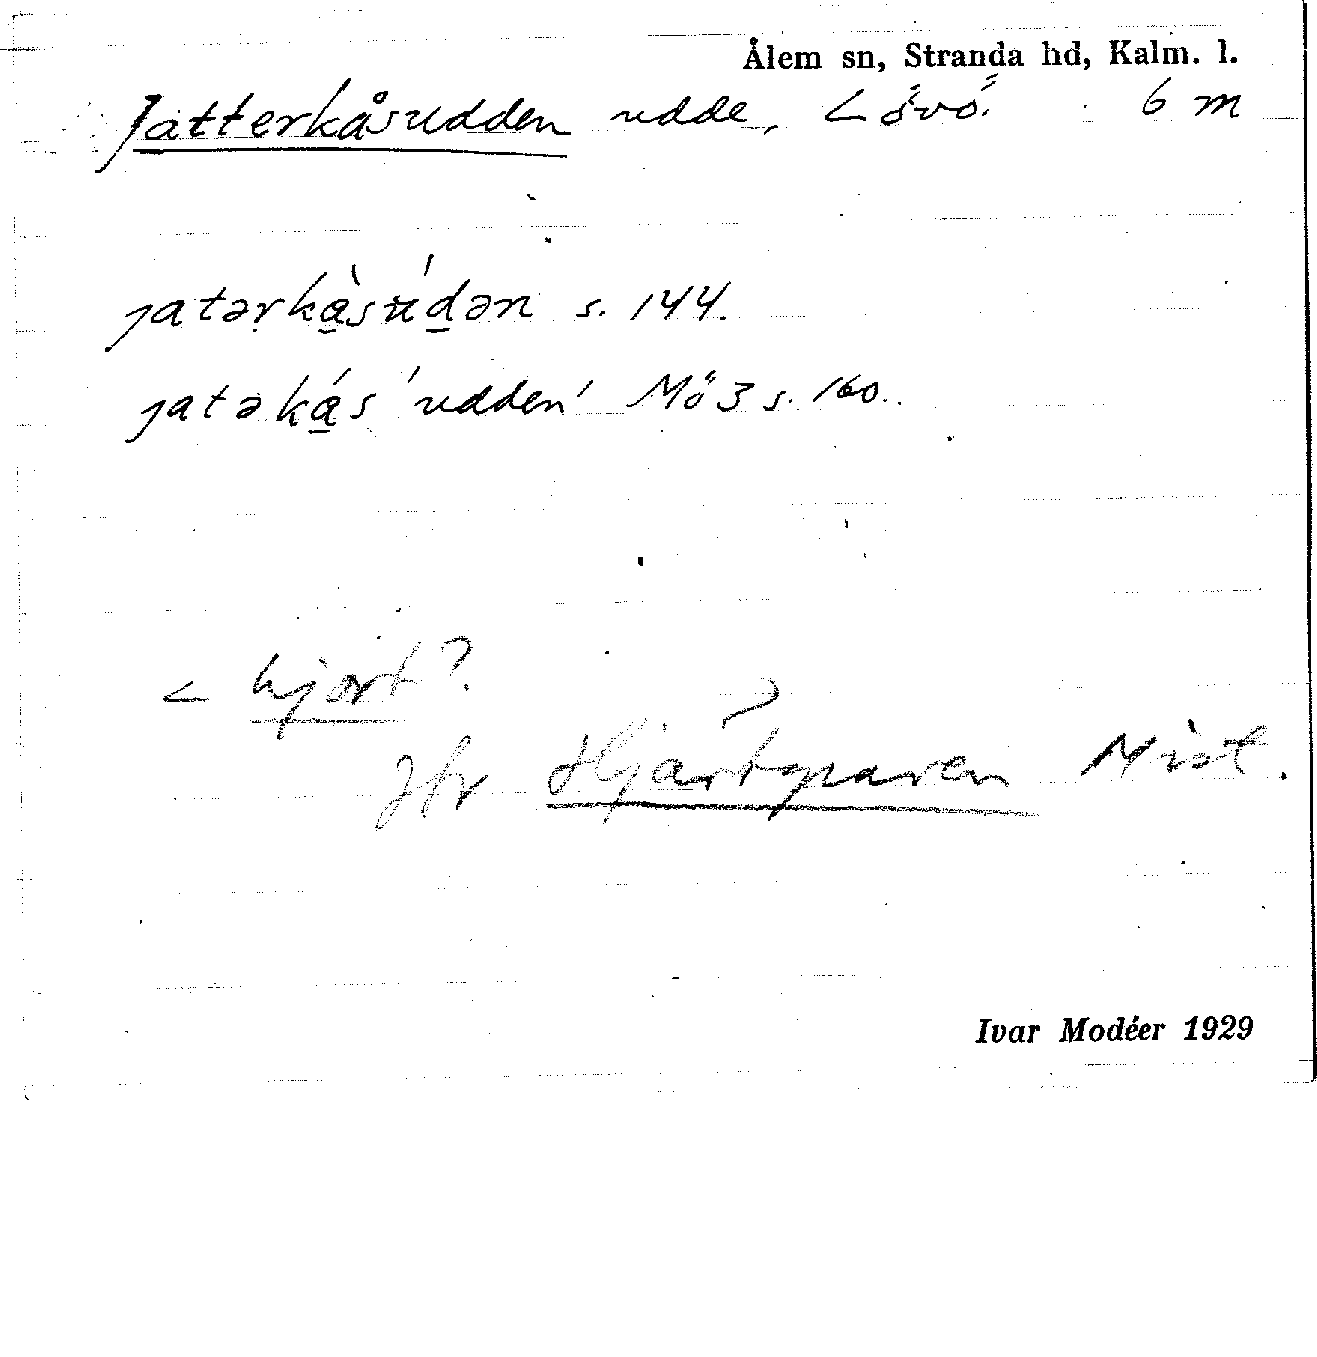 Ålem sn, Stranda hd, Kalm. l.
Jatterkåsudden udde, Lövö. 6 m
jatərkàsúdən s. 144.
jatəkás 'udden' Mö 3 s. 160.
< hjort?
Jfr Hjärt Mist.
Ivar Modéer 1929